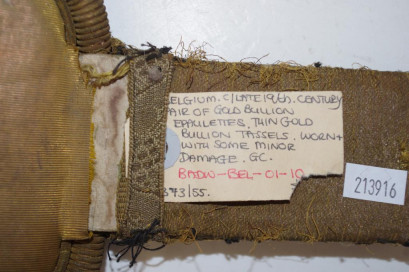 BELGIUM. C/LATE 19th. CENTURY
PAIR OF GOLD BULLION
EPAULETTES, THIN GOLD
BULLION TASSELS. WORN &
WITH SOME MINOR
DAMAGE. GC.
BMDW-BEL-01-10
373/55.
213916